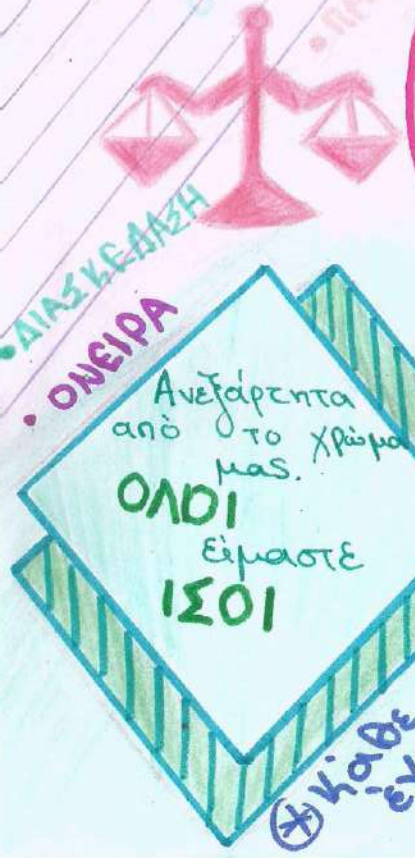 • ΔΙΑΣΚΕΔΑΣΗ
• ΟΝΕΙΡΑ
Ανεξάρτητα
από το χρώμα
μας.
ΟΛΟΙ
είμαστε
ΙΣΟΙ
* Κάθε